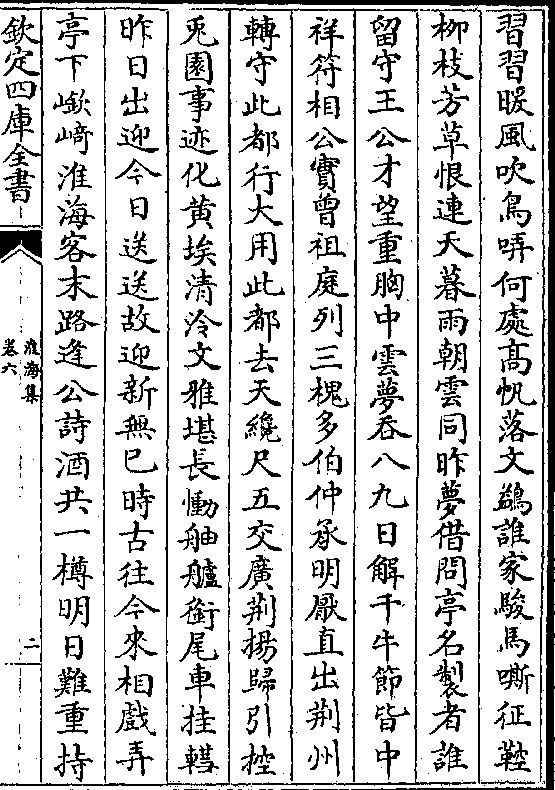 習習暖風吹鳥哢何處髙帆落文鷁誰家駿馬嘶征鞚
柳枝芳草恨連天暮雨朝雲同昨夢借問亭名製者誰
留守王公才望重胸中雲夢吞八九日解千牛節皆中
祥符相公實曾祖庭列三槐多伯仲承明厭直出荆州
轉守此都行大用此都去天纔尺五交廣荆揚歸引控
兎園事迹化黄埃清泠文雅堪長慟舳艫銜尾車挂轊
昨日出迎今日送送故迎新無已時古往今來相戲弄
亭下嶔﨑淮海客末路逢公詩酒共一樽明日難重持
欽定四庫全書
淮海集
卷六
二